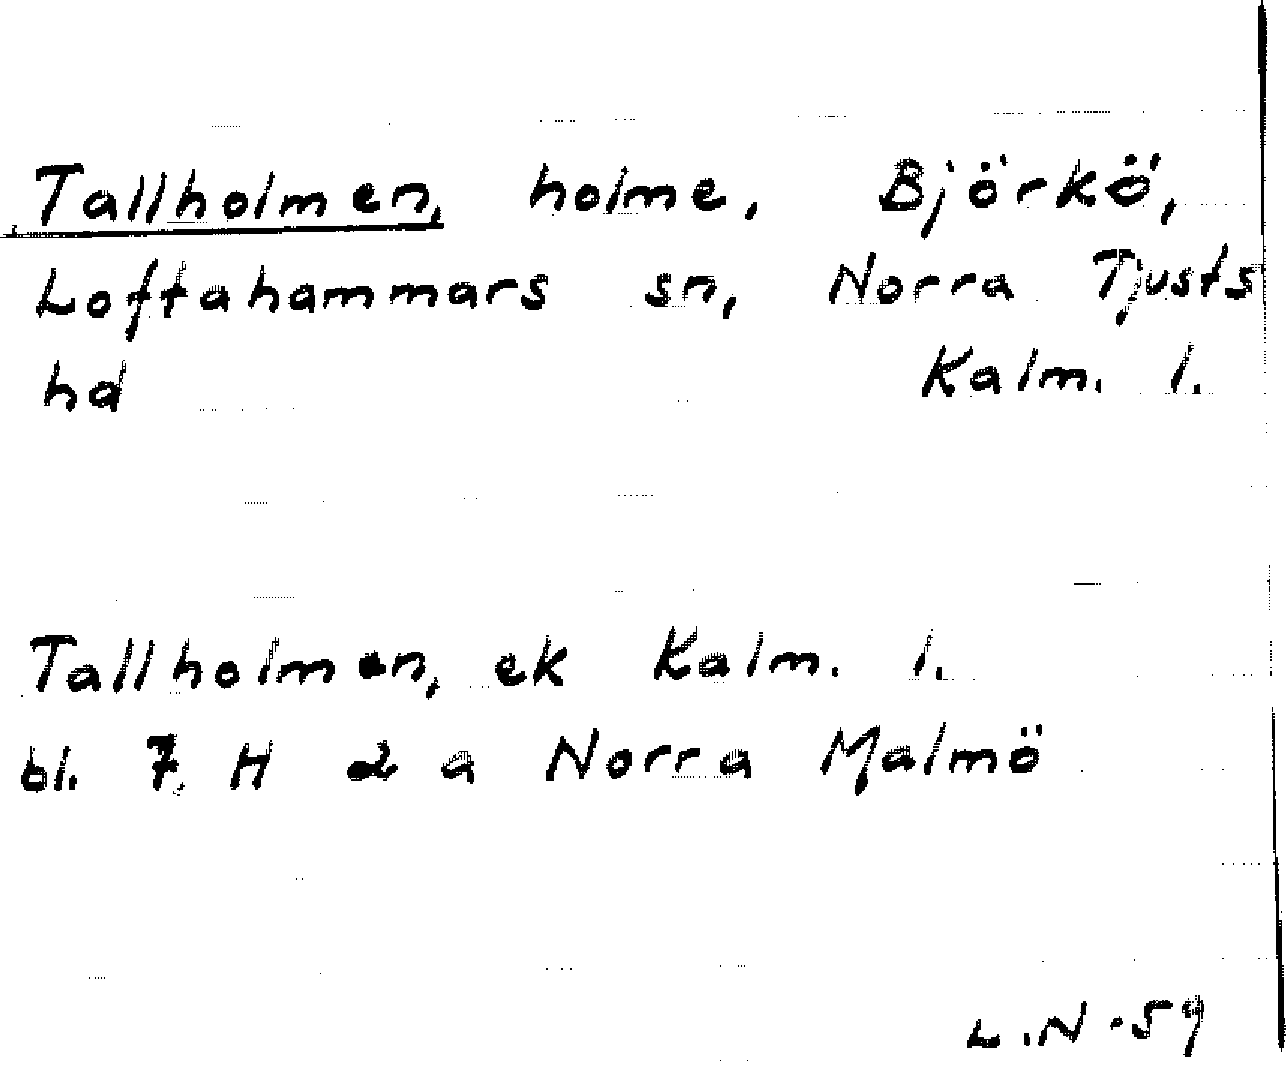 Tallholmen, holme, Björkö,
Loftahammars sn, Norra Tjusts
hd Kalm. l.
Tallholmen, ek Kalm. l.
bl. 7 H 2 a Norra Malmö
L.N. 59